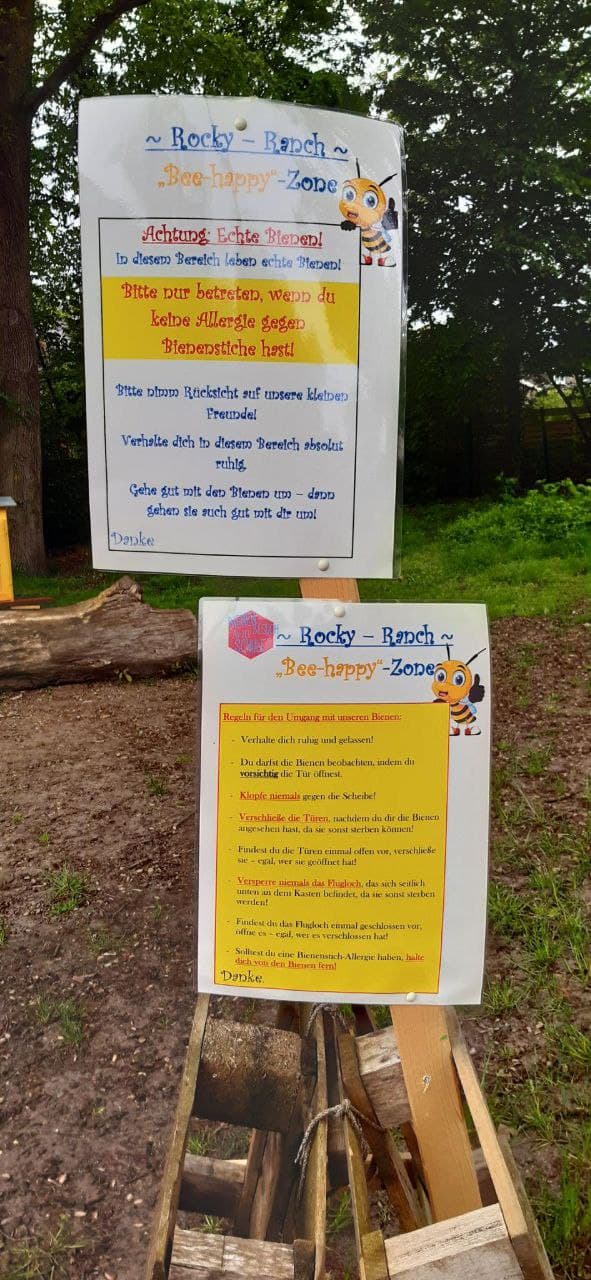 ~ Rocky – Ranch ~
„Bee-happy“-Zone
Achtung: Echte Bienen!
In diesem Bereich leben echte Bienen!
Bitte nur betreten, wenn du
keine Allergie gegen
Bienenstiche hast!
Bitte nimm Rücksicht auf unsere kleinen
Freunde!
Verhalte dich in diesem Bereich absolut
ruhig.
Gehe gut mit den Bienen um – dann
gehen sie auch gut mit dir um!
Danke
BIENEN
SCHULE
~ Rocky – Ranch ~
„Bee-happy“-Zone
Regeln für den Umgang mit unseren Bienen:
- Verhalte dich ruhig und gelassen!
- Du darfst die Bienen beobachten, indem du
vorsichtig die Tür öffnest.
- Klopfe niemals gegen die Scheibe!
- Verschließe die Türen, nachdem du dir die Bienen
angesehen hast, da sie sonst sterben können!
- Findest du die Türen einmal offen vor, verschließe
sie – egal, wer sie geöffnet hat!
- Versperre niemals das Flugloch, das sich seitlich
unten an dem Kasten befindet, da sie sonst sterben
werden!
- Findest du das Flugloch einmal geschlossen vor,
öffne es – egal, wer es verschlossen hat!
- Solltest du eine Bienenstich-Allergie haben, halte
dich von den Bienen fern!
Danke.